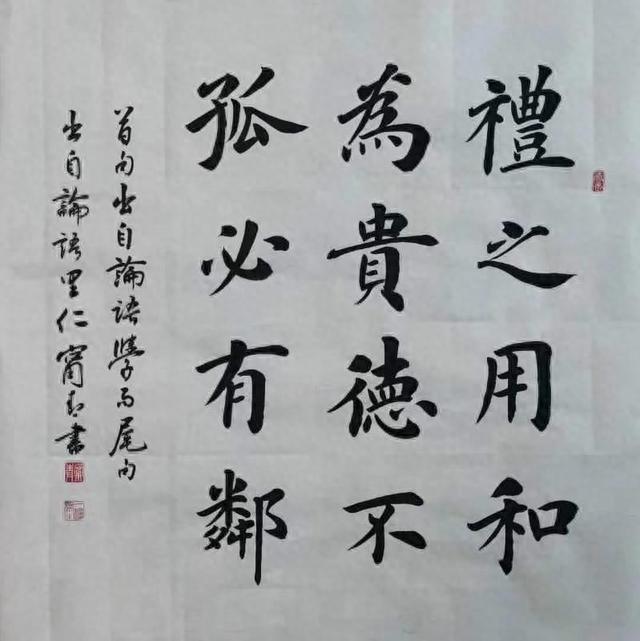 禮之用和
為貴德不
孤必有鄰
首句出自論語學而尾句
出自論語里仁甯
書